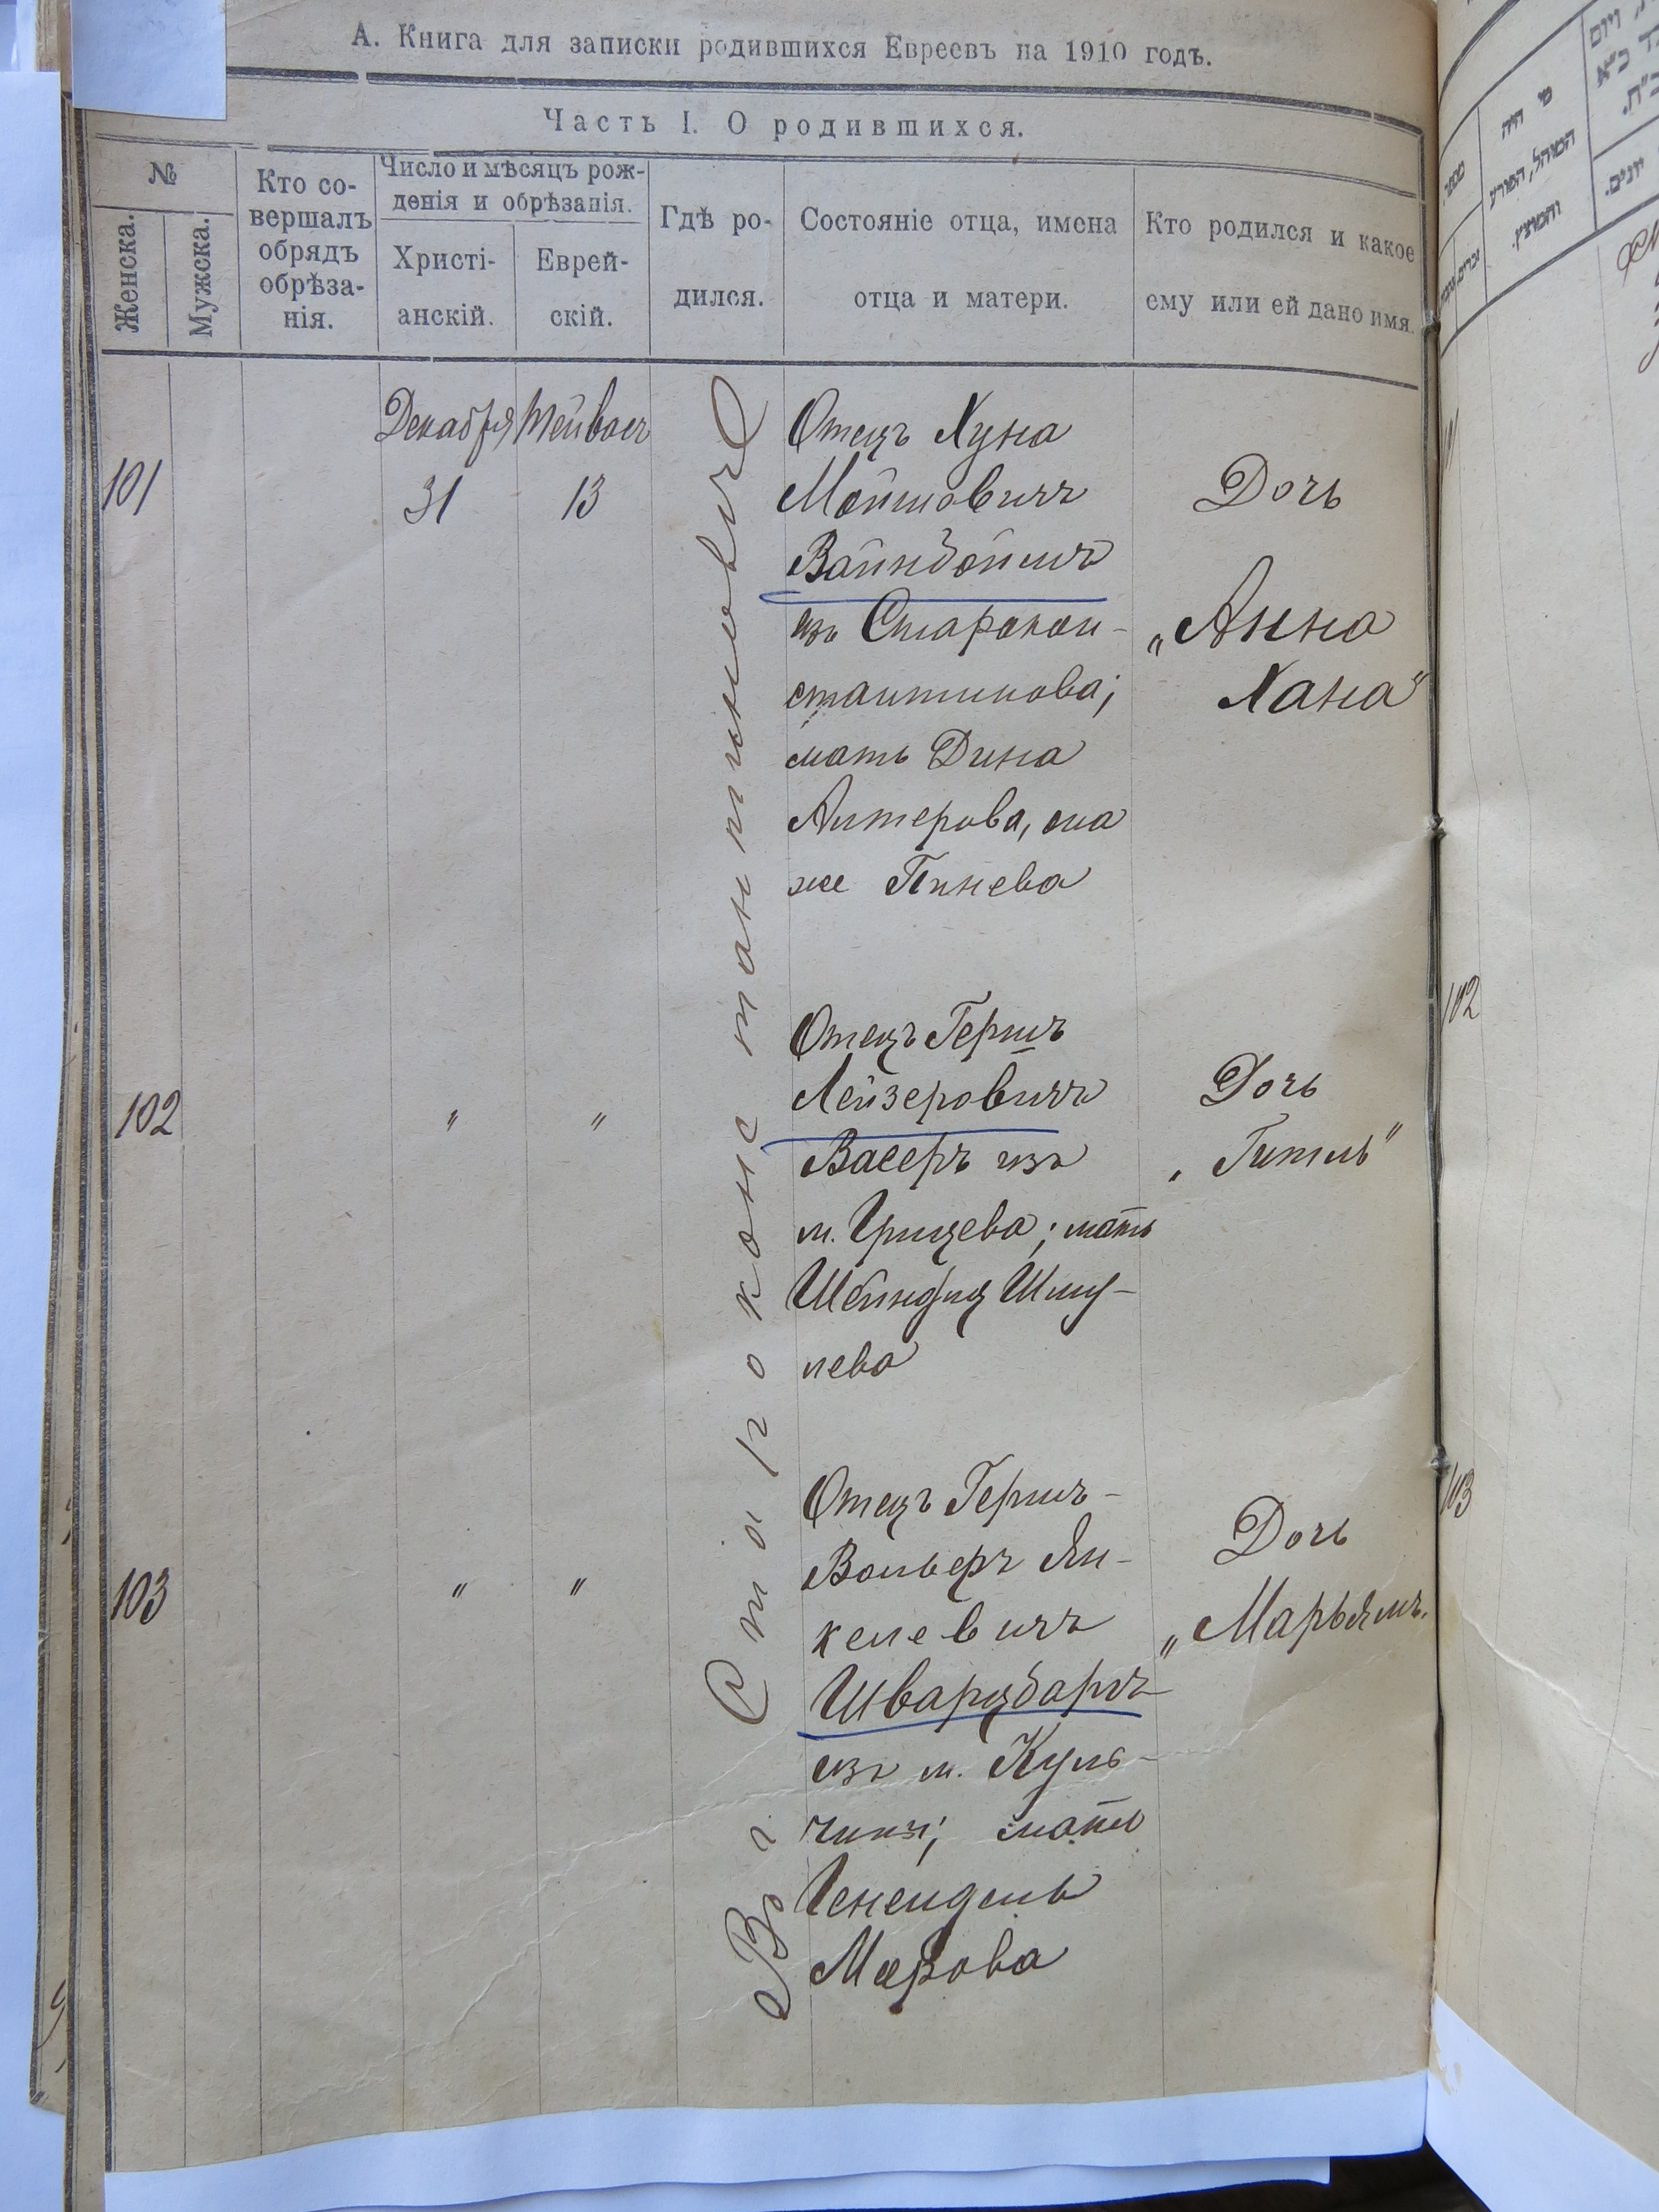 А. Книга для записки родившихся Евреевъ на 1910 годъ.
Часть I. О родившихся.
№
Женска.
Мужска.
Кто со-
вершалъ
обрядъ
обрѣза-
нія.
Число и мѣсяцъ рож-
денія и обрѣзанія.
Христі-
анскій.
Еврей-
скій.
Гдѣ ро-
дился.
Состояніе отца, имена
отца и матери.
Кто родился и какое
ему или ей дано имя.
Въ г. Староконстантиновѣ
101
Декабря
31
Тейвосъ
13
Отецъ Хуна
Мойшовичъ
Вайнбоймъ
изъ Старокон-
стантинова;
мать Дина
Алтерова, она
же Пинева
Дочь
„Анна
Хана"
102
"
"
Отецъ Гершъ
Лейзеровичъ
Васеръ изъ
м. Грицева; мать
Шейндля Шму-
лева
Дочь
„Гитль"
103
"
"
Отецъ Гершъ-
Вольферъ Ян-
келевичъ
Шварцбардъ
изъ м. Куль-
чинъ; мать
Ченендель
Меерова
Дочь
„Марьямъ"
מי היה
המוהל, הפורע
והמוצץ.
102
103